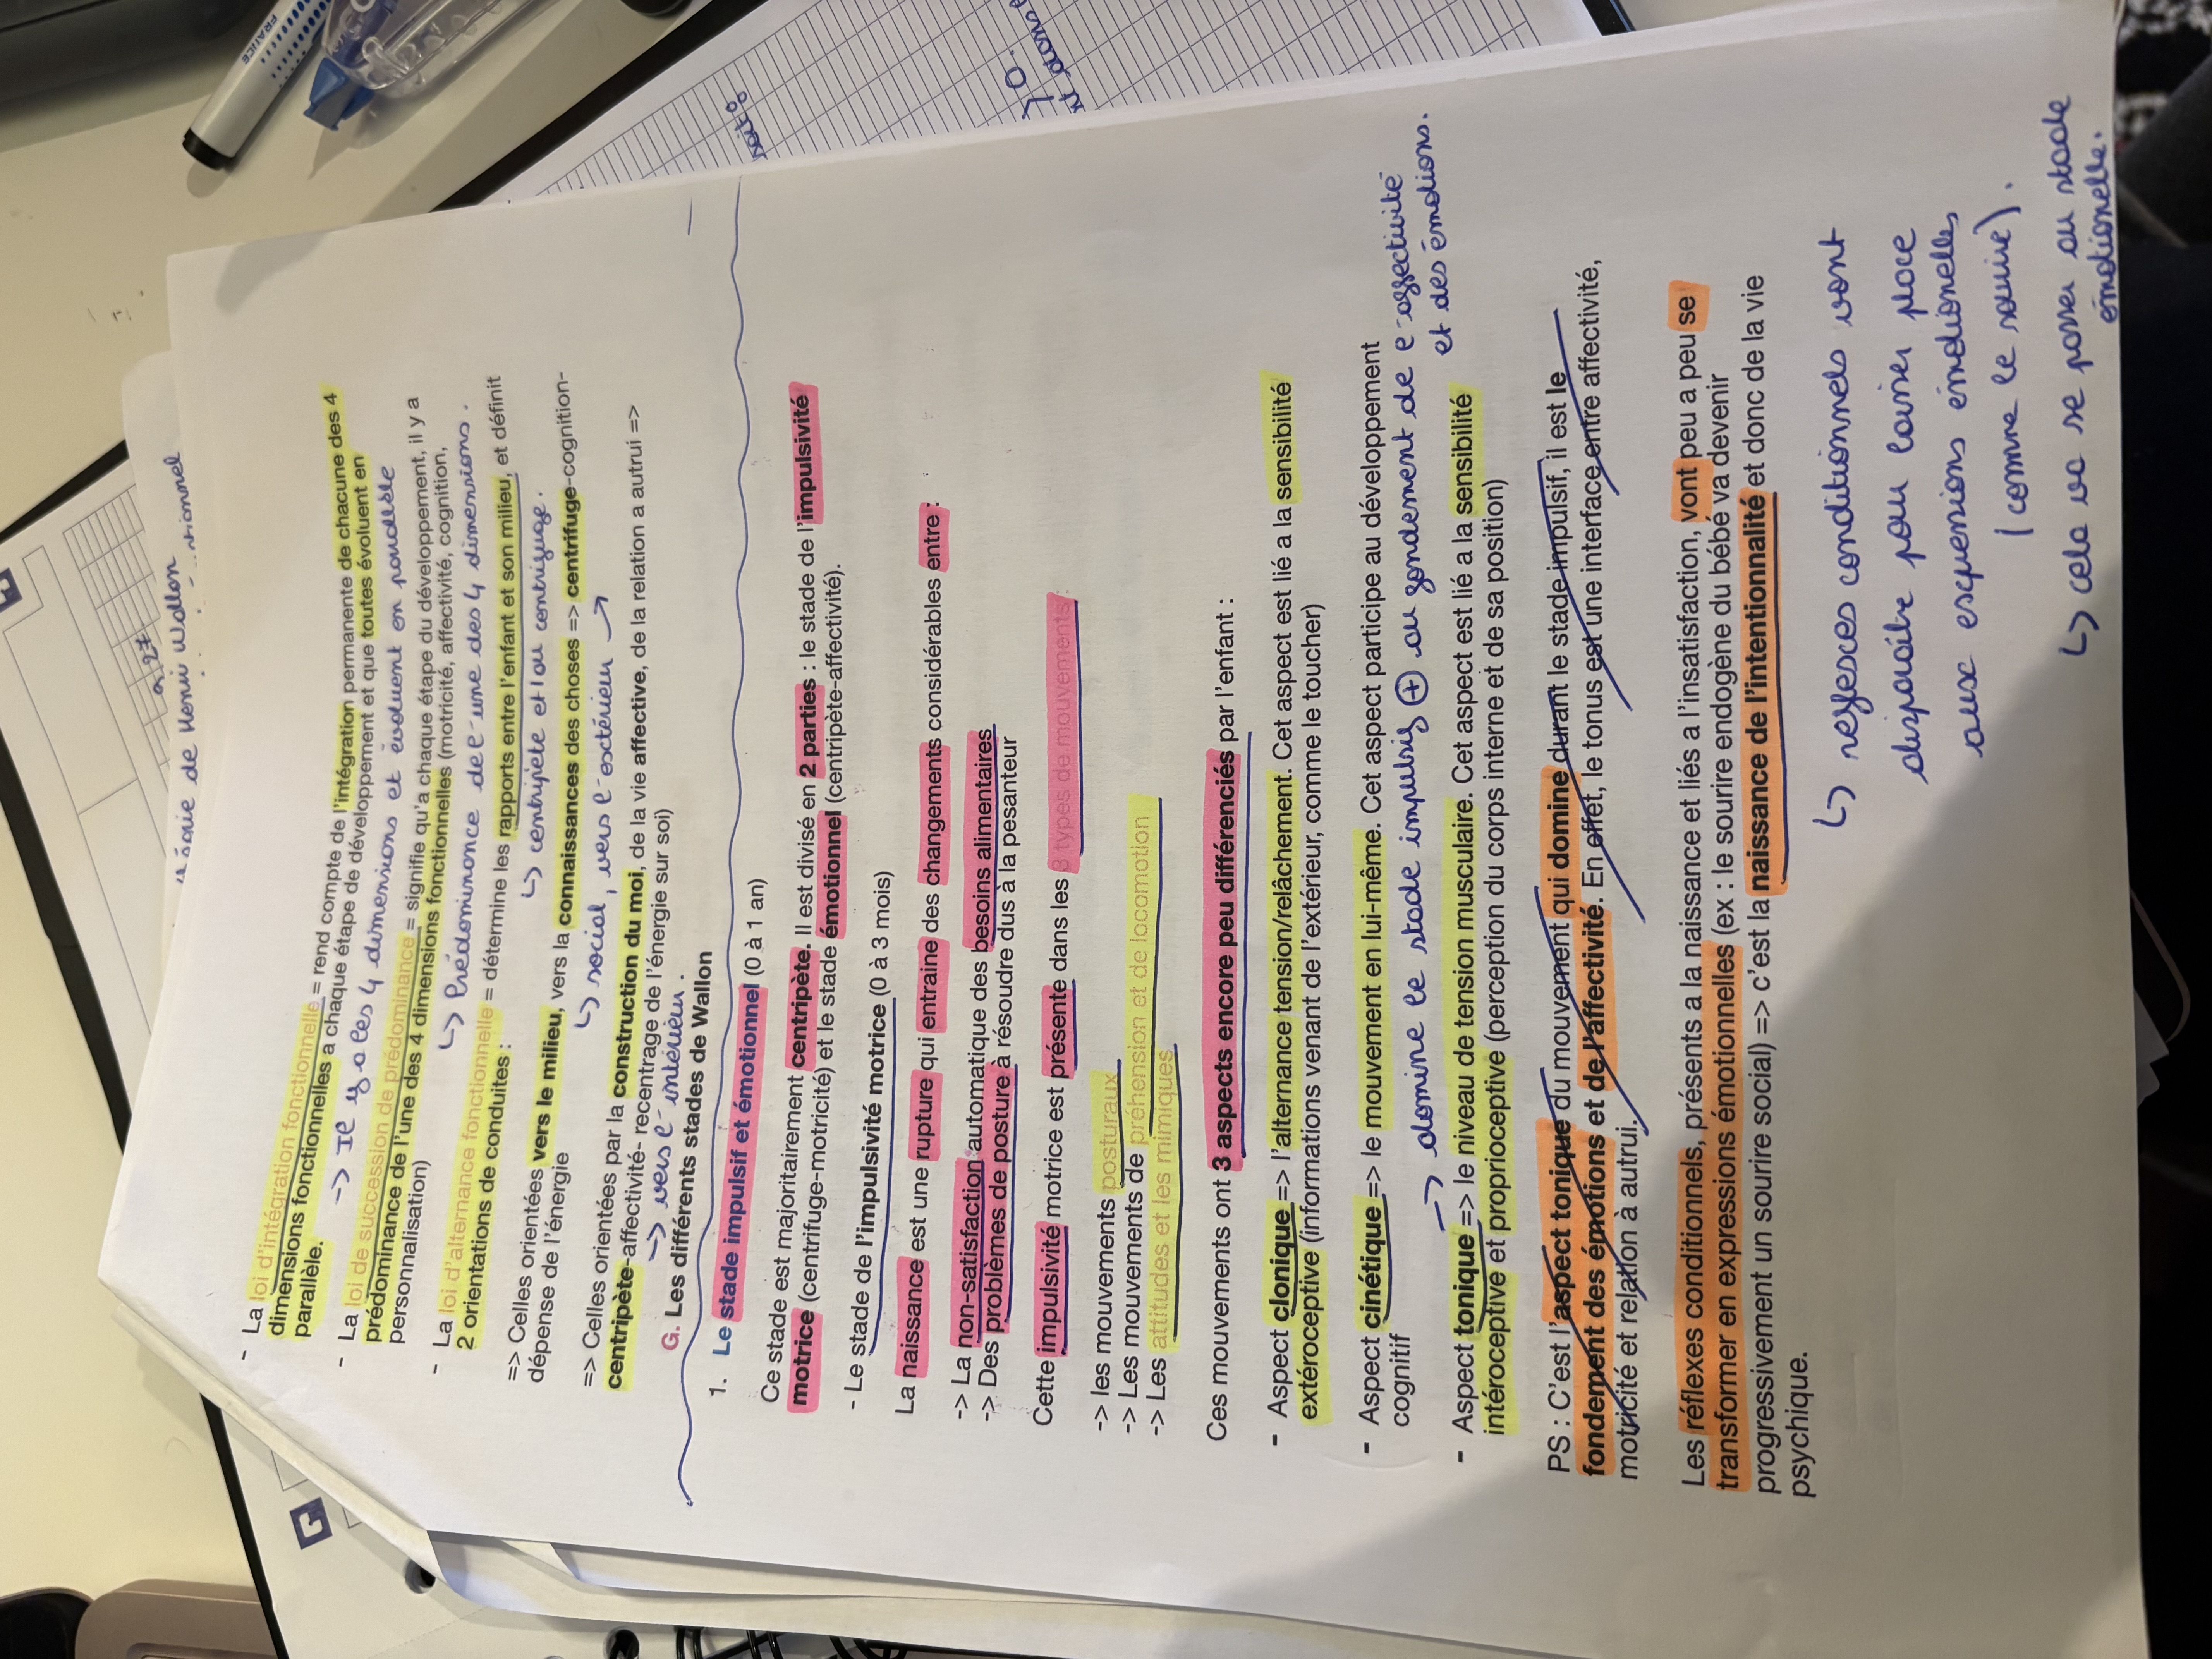 théorie de Henri Wallon
- La loi d'intégration fonctionnelle = rend compte de l'intégration permanente de chacune des 4
dimensions fonctionnelles a chaque étape de développement et que toutes évoluent en
parallèle.
-> Il y a les 4 dimensions et évoluent en parallèle
- La loi de succession de prédominance = signifie qu'a chaque étape du développement, il y a
prédominance de l'une des 4 dimensions fonctionnelles (motricité, affectivité, cognition,
personnalisation)
↳ Prédominance de l'une des 4 dimensions.
- La loi d'alternance fonctionnelle = détermine les rapports entre l'enfant et son milieu, et définit
2 orientations de conduites :
↳ centripète et/ou centrifuge.
=> Celles orientées vers le milieu, vers la connaissances des choses => centrifuge-cognition-
dépense de l'énergie
↳ social, vers l'extérieur →
=> Celles orientées par la construction du moi, de la vie affective, de la relation a autrui =>
centripète-affectivité- recentrage de l'énergie sur soi)
-> vers l'intérieur.
G. Les différents stades de Wallon
1. Le stade impulsif et émotionnel (0 à 1 an)
Ce stade est majoritairement centripète. Il est divisé en 2 parties : le stade de l'impulsivité
motrice (centrifuge-motricité) et le stade émotionnel (centripète-affectivité).
- Le stade de l'impulsivité motrice (0 à 3 mois)
La naissance est une rupture qui entraine des changements considérables entre :
-> La non-satisfaction automatique des besoins alimentaires
-> Des problèmes de posture à résoudre dus à la pesanteur
Cette impulsivité motrice est présente dans les 3 types de mouvements :
-> les mouvements posturaux
-> Les mouvements de préhension et de locomotion
-> Les attitudes et les mimiques
Ces mouvements ont 3 aspects encore peu différenciés par l'enfant :
- Aspect clonique => l'alternance tension/relâchement. Cet aspect est lié a la sensibilité
extéroceptive (informations venant de l'extérieur, comme le toucher)
- Aspect cinétique => le mouvement en lui-même. Cet aspect participe au développement
cognitif
-> domine le stade impulsif ⊕ au fondement de l'affectivité
et des émotions.
- Aspect tonique => le niveau de tension musculaire. Cet aspect est lié a la sensibilité
intéroceptive et proprioceptive (perception du corps interne et de sa position)
PS : C'est l'aspect tonique du mouvement qui domine durant le stade impulsif, il est le
fondement des émotions et de l'affectivité. En effet, le tonus est une interface entre affectivité,
motricité et relation à autrui.
Les réflexes conditionnels, présents a la naissance et liés a l'insatisfaction, vont peu a peu se
transformer en expressions émotionnelles (ex : le sourire endogène du bébé va devenir
progressivement un sourire social) => c'est la naissance de l'intentionnalité et donc de la vie
psychique.
↳ reflexes conditionnels vont
disparaître pour laisser place
aux expressions émotionelles
(comme le sourire).
↳ cela va se passer au stade
émotionelle.